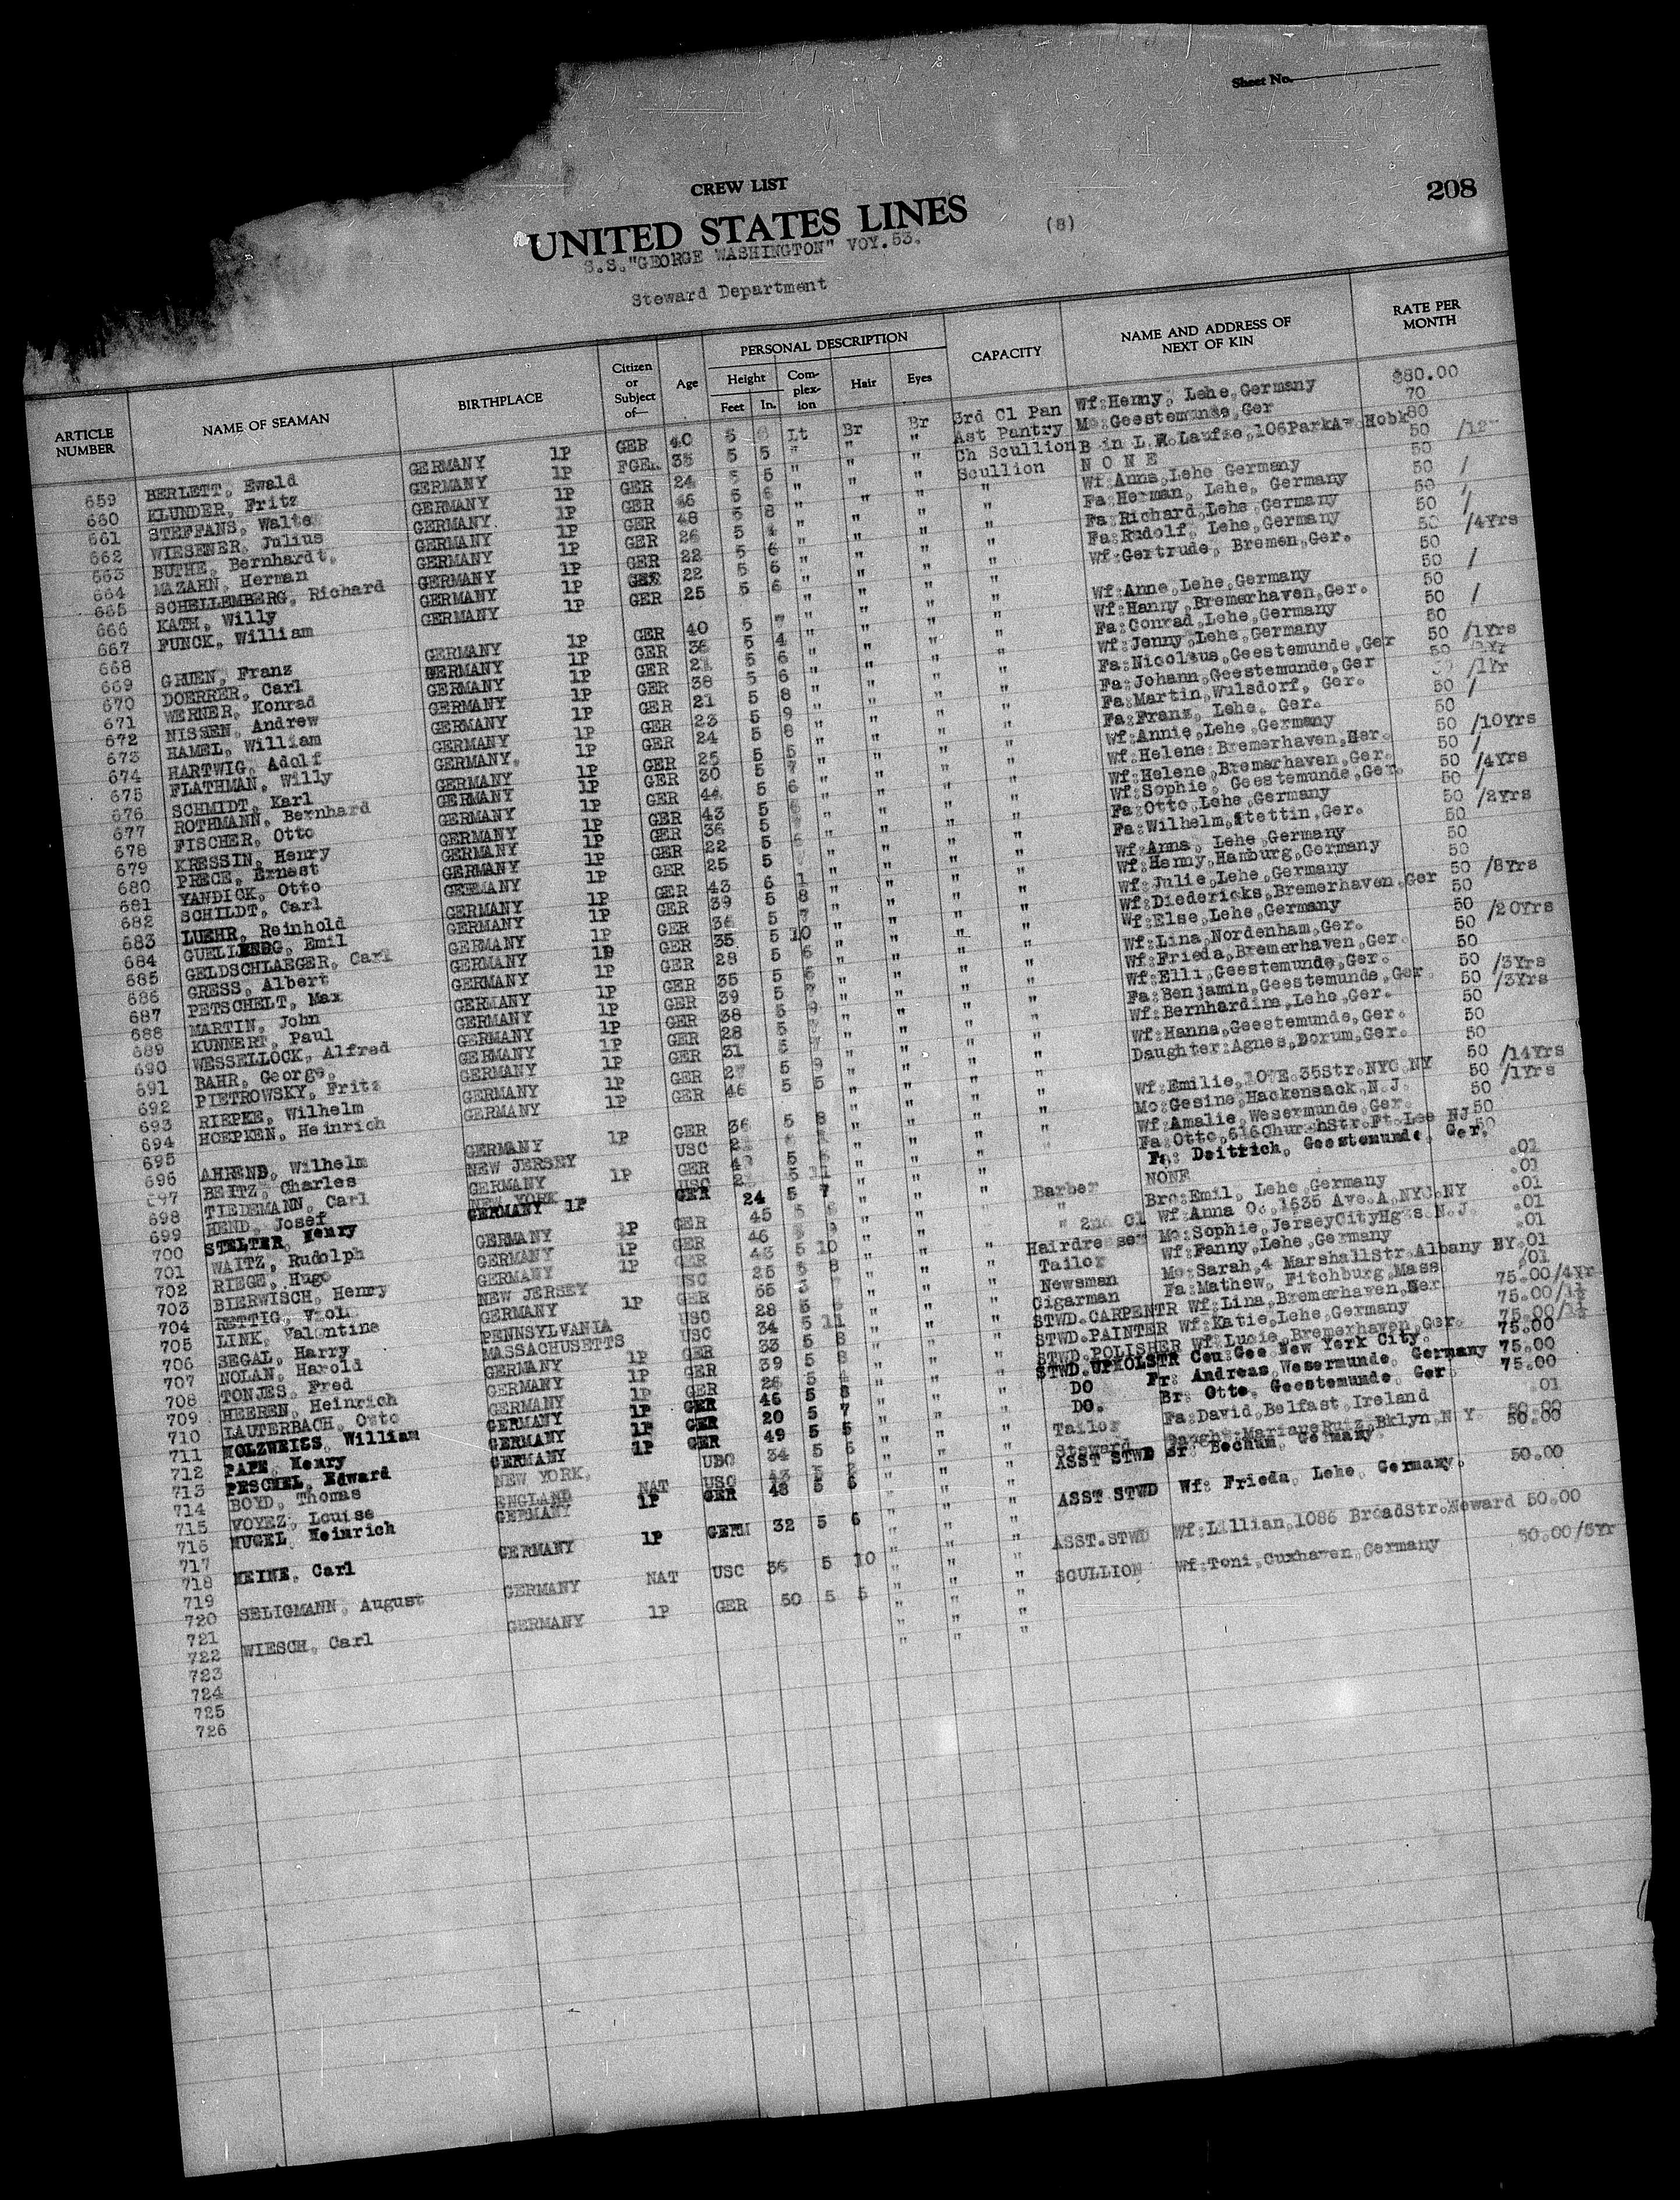 Sheet No.
208
CREW LIST
UNITED STATES LINES
(8)
S.S."GEORGE WASHINGTON" VOY.53.
Steward Department
ARTICLE NUMBER NAME OF SEAMAN BIRTHPLACE Citizen or Subject of— Age PERSONAL DESCRIPTION Height Feet In. Complexion Hair Eyes CAPACITY NAME AND ADDRESS OF NEXT OF KIN RATE PER MONTH
659 BERLETT, Ewald GERMANY 1P GER 40 5 Lt Br Br 3rd Cl Pan Wf:Henny, Lehe,Germany $80.00
660 KLUNDER, Fritz GERMANY 1P GER 35 5 5 " " " Ast Pantry Mo:Geestemunde,Ger 70
661 STEFFANS, Walte GERMANY 1P GER 24 5 5 " " " Ch Scullion B in L W.Laufze,106ParkAv.Hobk 80
662 WIESENER, Julius GERMANY 1P GER 46 5 6 " " " Scullion N O N E 50 /12
663 BUTHE, Bernhardt, GERMANY 1P GER 48 5 8 " " " " Wf:Anna,Lehe Germany 50
664 MAZAHN, Herman GERMANY 1P GER 26 5 4 " " " " Fa:Herman, Lehe, Germany 50 /
665 SCHELLEMBERG, Richard GERMANY 1P GER 22 5 6 " " " " Fa:Richard,Lehe,Germany 50 /
666 KATH, Willy GERMANY 1P GER 22 5 6 " " " " Fa:Rudolf, Lehe,Germany 50 /
667 FUNCK, William GERMANY 1P GER 25 5 6 " " " " Wf:Gertrude, Bremen,Ger. 50 /4Yrs
668
669 GRUEN, Franz GERMANY 1P GER 40 5 7 " " " " Wf:Anne,Lehe,Germany 50 /
670 DOERRER, Carl GERMANY 1P GER 36 5 4 " " " " Wf:Hanny,Bremerhaven,Ger. 50
671 WERNER, Konrad GERMANY 1P GER 21 5 6 " " " " Fa:Conrad,Lehe,Germany 50 /
672 NISSEN, Andrew GERMANY 1P GER 38 5 6 " " " " Wf:Jenny,Lehe,Germany 50
673 HAMEL, William GERMANY 1P GER 21 5 8 " " " " Fa:Nicolaus,Geestemunde,Ger 50 /1Yrs
674 HARTWIG, Adolf GERMANY 1P GER 23 5 9 " " " " Fa:Johann,Geestemunde,Ger 50
675 FLATHMAN, Willy GERMANY, 1P GER 24 5 8 " " " " Fa:Martin,Wulsdorf, Ger. /1Yr
676 SCHMIDT, Karl GERMANY 1P GER 25 5 5 " " " " Fa:Franz, Lehe, Ger. 50 /
677 ROTHMANN, Bernhard GERMANY 1P GER 30 5 7 " " " " Wf:Annie,Lehe,Germany 50
678 FISCHER, Otto GERMANY 1P GER 44 5 6 " " " " Wf:Helene:Bremerhaven,Ger. 50 /10Yrs
679 KRESSIN, Henry GERMANY 1P GER 43 5 " " " " Wf:Helene,Bremerhaven,Ger. 50 /
680 PRECE, Ernest GERMANY 1P GER 36 5 " " " " Wf:Sophie, Geestemunde,Ger. 50 /4Yrs
681 YANDICK, Otto GERMANY 1P GER 22 5 " " " " Fa:Otto,Lehe,Germany 50 /
682 SCHILDT, Carl GERMANY 1P GER 25 5 " " " " Fa:Wilhelm,Stettin,Ger. 50 /2Yrs
683 LUEHR, Reinhold GERMANY 1P GER 43 6 1 " " " " Wf:Anna, Lehe,Germany 50
684 Emil GERMANY 1P GER 39 5 8 " " " " Wf:Henny,Hamburg,Germany 50
685 GELDSCHLAEGER, Carl GERMANY 1P GER 36 5 7 " " " " Wf:Julie,Lehe,Germany 50
686 GRESS, Albert GERMANY 1P GER 35 5 10 " " " " Wf:Diedericks,Bremerhaven,Ger 50 /8Yrs
687 PETSCHELT, Max GERMANY 1P GER 28 5 6 " " " " Wf:Else,Lehe,Germany 50
688 MARTIN, John GERMANY 1P GER 35 5 6 " " " " Wf:Lina,Nordenham,Ger. 50 /20Yrs
689 KUNNERT, Paul GERMANY 1P GER 39 5 7 " " " " Wf:Frieda,Bremerhaven,Ger. 50
690 WESSELLOCK, Alfred GERMANY 1P GER 38 5 9 " " " " Wf:Elli,Geestemunde,Ger. 50
691 BAHR, George, GERMANY 1P GER 28 5 7 " " " " Fa:Benjamin,Geestemunde,Ger. 50 /3Yrs
692 PIETROWSKY, Fritz GERMANY 1P GER 31 5 7 " " " " Wf:Bernhardine,Lehe,Ger. 50 /3Yrs
693 RIEPKE, Wilhelm GERMANY 1P GER 27 5 9 " " " " Wf:Hanna,Geestemunde,Ger. 50
694 HOEPKEN, Heinrich GERMANY 1P GER 46 5 5 " " " " Daughter:Agnes,Dorum,Ger. 50
695
696 AHREND, Wilhelm GERMANY 1P GER 36 5 8 " " " " Wf:Emilie,107E.35Str.NYC.NY 50 /14Yrs
697 BEITZ, Charles NEW JERSEY USC " " " " Mo:Gesine,Hackensack,N.J. 50 /1Yrs
698 TIEDEMANN, Carl GERMANY 1P GER 5 " " " " Wf:Amalie,Wesermunde,Ger. 50
699 HEND, Josef NEW YORK USC 5 11 " " " " Fa:Otto,616ChurchStr.Ft.Lee NJ 50
700 STELTER, Henry GERMANY 1P GER 24 5 7 " " " " Fa: Deitrich, Geestemunde, Ger. 50
701 WAITZ, Rudolph GERMANY 1P GER 45 5 " " " Barber NONE .01
702 RIEGE, Hugo GERMANY 1P GER 46 9 " " " " Bro:Emil, Lehe,Germany .01
703 BIERWISCH, Henry GERMANY 1P GER 43 5 10 " " " " 2nd Cl Wf:Anna O., 1635 Ave.A,NYC.NY .01
704 RETTIG, NEW JERSEY USC 25 5 8 " " " Hairdresser Mo:Sophie,JerseyCityHgts N.J. .01
705 LINK, Valentine GERMANY 1P GER 55 " " " Tailor Wf:Fanny,Lehe,Germany .01
706 SEGAL, Harry PENNSYLVANIA USC 28 5 " " " Newsman Mo:Sarah,4 MarshallStr.Albany NY .01
707 NOLAN, Harold MASSACHUSETTS USC 34 5 11 " " " Cigarman Fa:Mathew, Fitchburg,Mass .01
708 TONJES, Fred GERMANY 1P GER 33 5 8 " " " STWD.CARPENTR Wf:Lina,Bremerhaven,Ger 75.00/4Yr
709 HEEREN, Heinrich GERMANY 1P GER 39 5 8 " " " STWD.PAINTER Wf:Katie,Lehe,Germany 75.00/1½
710 LAUTERBACH, Otto GERMANY 1P GER 26 5 " " " STWD.POLISHER Wf:Lucie,Bremerhaven,Ger. 75.00/1½
711 HOLZWEISS, William GERMANY 1P GER 46 5 8 " " " STWD.UPHOLSTR Cou:Geo New York City. 75.00
712 PAPE, Henry GERMANY 1P GER 20 5 7 " " " DO Fr: Andreas,Wesermunde, Germany 75.00
713 PESCHEL, Edward GERMANY 1P GER 49 5 5 " " " DO. Br: Otto, Geestemunde, Ger. 75.00
714 BOYD, Thomas NEW YORK, USC 34 5 5 " " " Tailor Fa:David,Belfast,Ireland .01
715 VOYEZ, Louise ENGLAND NAT USC 43 5 2 " " " Steward Ruiz,Bklyn,N.Y. 50.00
716 NUGEL, Heinrich GERMANY 1P GER 48 5 5 " " " ASST STWD Br: Bochum, Germany. 50.00
717
718 HEINE, Carl GERMANY 1P GERM 32 5 6 " " " ASST STWD Wf: Frieda, Lehe, Germany. 50.00
719
720 SELIGMANN, August GERMANY NAT USC 36 5 10 " " " ASST.STWD Wf:Lillian,1086 BroadStr.Neward 50.00
721
722 WIESCH, Carl GERMANY 1P GER 50 5 5 " " " SCULLION Wf:Toni,Cuxhaven,Germany 50.00/5Yr
723
724
725
726